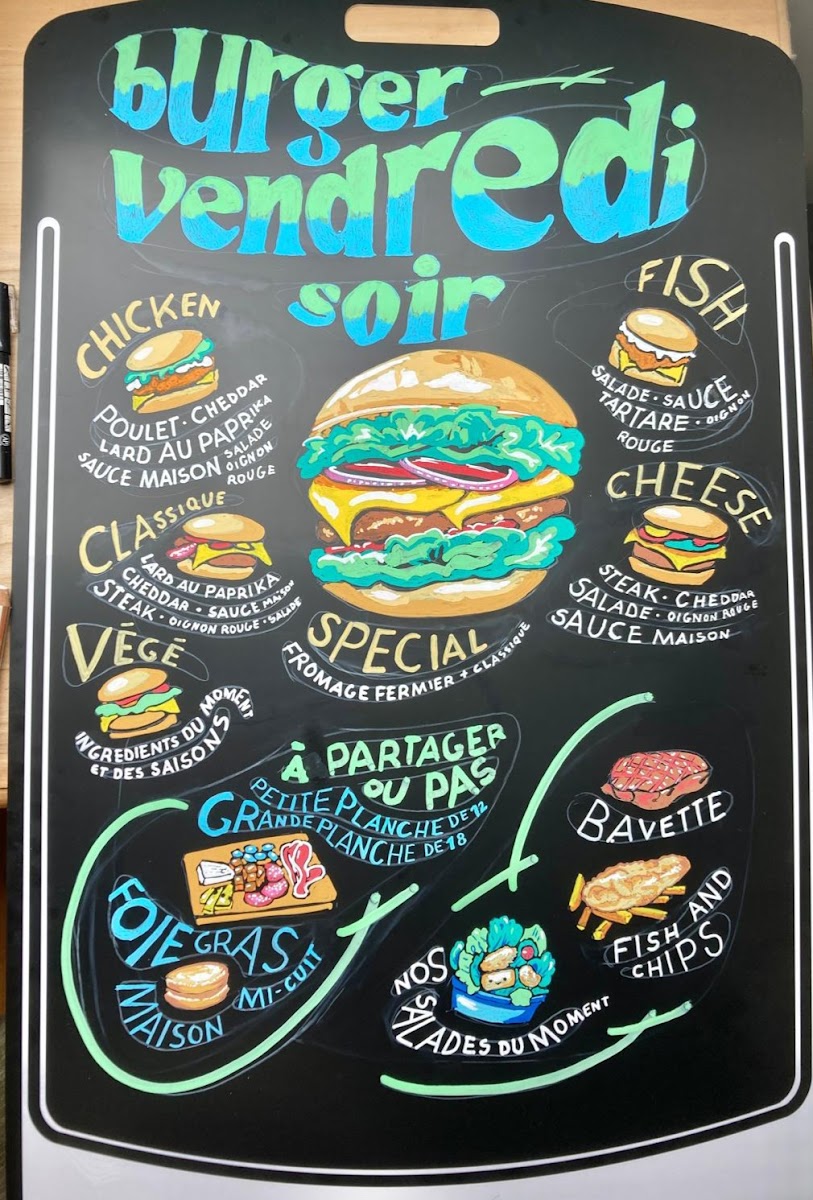 burger
vendredi
soir
CHICKEN
POULET · CHEDDAR
LARD AU PAPRIKA
SAUCE MAISON
SALADE
OIGNON
ROUGE
FISH
SALADE · SAUCE
TARTARE · OIGNON
ROUGE
CLASSIQUE
LARD AU PAPRIKA
CHEDDAR · SAUCE MAISON
STEAK · OIGNON ROUGE · SALADE
CHEESE
STEAK · CHEDDAR
SALADE · OIGNON ROUGE
SAUCE MAISON
SPECIAL
FROMAGE FERMIER + CLASSIQUE
VÉGÉ
INGREDIENTS DU MOMENT
ET DES SAISONS
À PARTAGER
OU PAS
PETITE PLANCHE DE 12
GRANDE PLANCHE DE 18
FOIE GRAS
MAISON MI-CUIT
BAVETTE
FISH AND
CHIPS
NOS
SALADES DU MOMENT